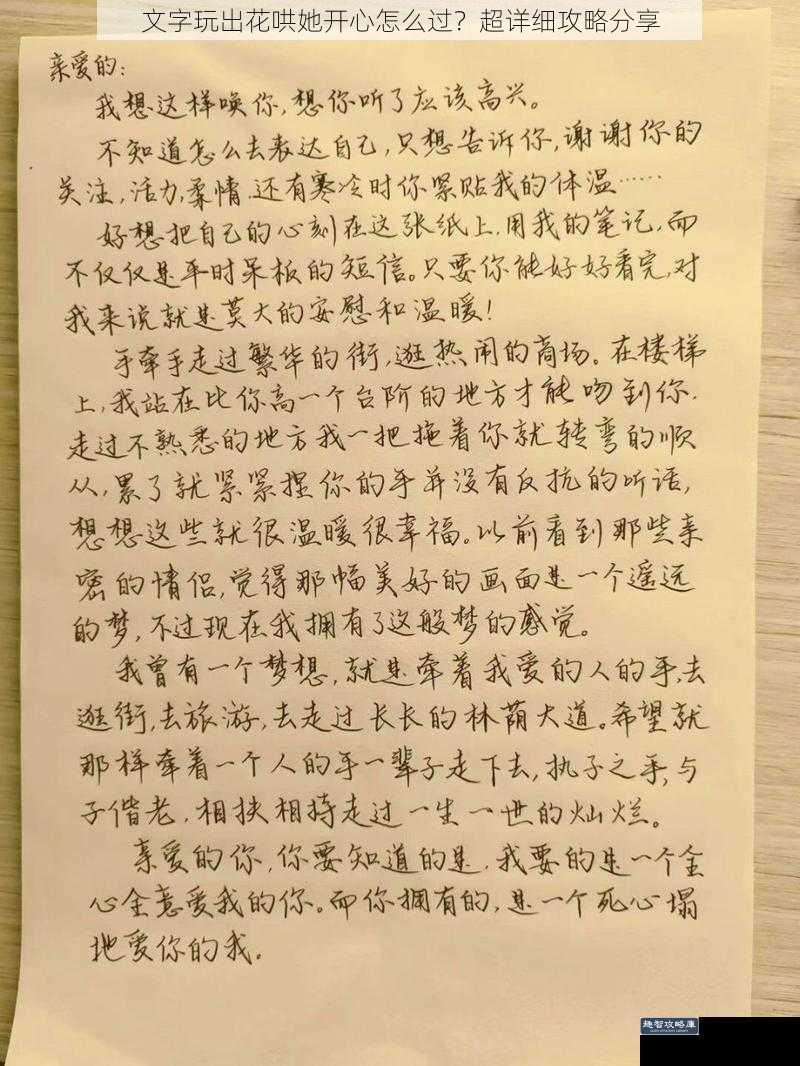 文字玩出花哄她开心怎么过？超详细攻略分享
亲爱的：
我想这样唤你，想你听了应该高兴。
不知道怎么去表达自己，只想告诉你，谢谢你的
关注，活力，柔情．还有寒冷时你紧贴我的体温……
好想把自己的心刻在这张纸上．用我的笔记，而
不仅仅是平时呆板的短信。只要你能好好看完，对
我来说就是莫大的安慰和温暖！
手牵手走过繁华的街，逛热闹的商场。在楼梯
上，我站在比你高一个台阶的地方才能吻到你．
走过不熟悉的地方我一把拖着你就转弯的顺
从，累了就紧紧捏你的手并没有反抗的听话，
想想这些就很温暖很幸福。以前看到那些亲
密的情侣，觉得那幅美好的画面是一个遥远
的梦，不过现在我拥有了这般梦的感觉。
我曾有一个梦想，就是牵着我爱的人的手，去
逛街，去旅游，去走过长长的林荫大道。希望就
那样牵着一个人的手一辈子走下去，执子之手，与
子偕老，相扶相持走过一生一世的灿烂。
亲爱的你，你要知道的是．我要的是一个全
心全意爱我的你。而你拥有的，是一个死心塌
地爱你的我。
趣智攻略库